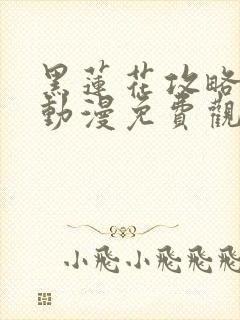 黑蓮花攻略
動漫免費觀
小飛小飛飛飛